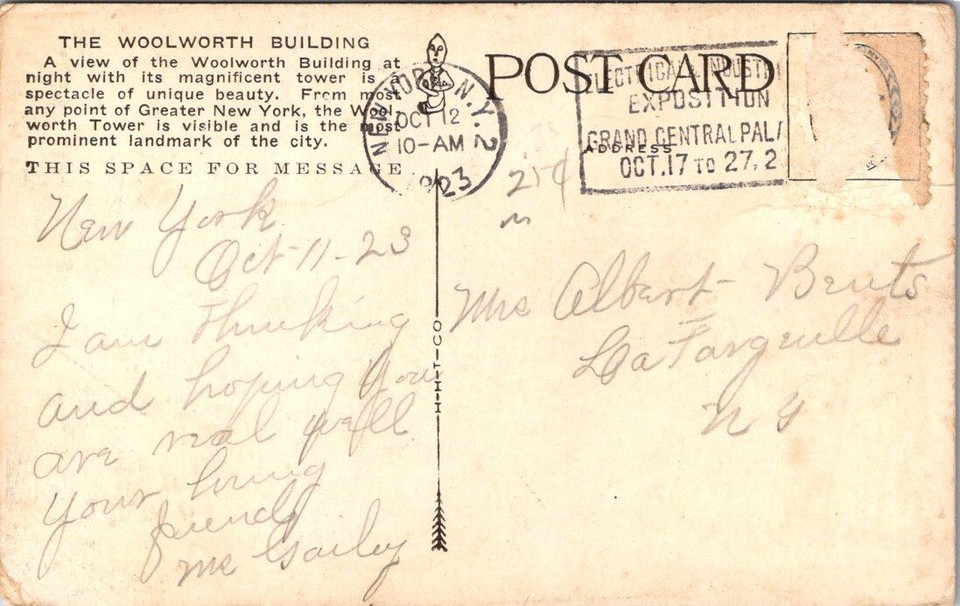 THE WOOLWORTH BUILDING
A view of the Woolworth Building at
night with its magnificent tower is a
spectacle of unique beauty. From most
any point of Greater New York, the Wool-
worth Tower is visible and is the most
prominent landmark of the city.
THIS SPACE FOR MESSAGE
NEW YORK, N.Y. 2
OCT 12
10-AM
23
POST CARD
ADDRESS
ELECTRICAL & INDUSTRI
EXPOSITION
GRAND CENTRAL PALA
OCT. 17 TO 27, 2
25¢
New York
Oct-11-23
I am thinking
and hoping you
are real well
Your loving
friend
Mc
H-H-T-CO
Mrs Albert
LaFargeville
N Y